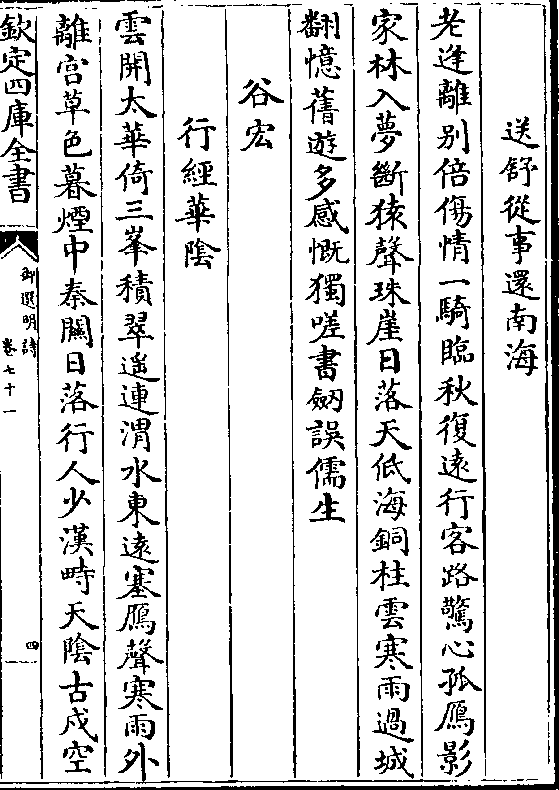 送舒從事還南海
老逢離别倍傷情一騎臨秋復逺行客路驚心孤鴈影
家林入夢斷猿聲珠崖日落天低海銅柱雲寒雨過城
翻憶舊遊多感慨獨嗟書劒誤儒生
谷宏
行經華陰
雲開太華倚三峯積翠遥連渭水東逺塞鴈聲寒雨外
離宫草色暮煙中秦關日落行人少漢畤天陰古戍空
欽定四庫全書
御選明詩
卷七十一
四